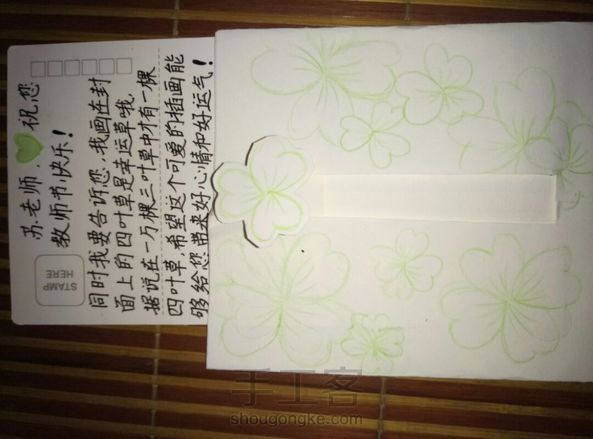 苏老师 祝您
教师节快乐!
同时我要告诉您,我画在封
面上的四叶草是幸运草哦,
据说在一万棵三叶草中才有一棵
四叶草,希望这个可爱的插画能
够给您带来好心情和好运气!
STAMP
HERE
手工客
shougongke.com